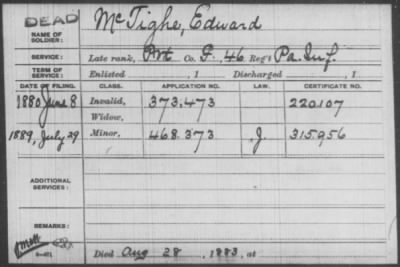 DEAD
McTighe, Edward
NAME OF
SOLDIER:
SERVICE: Late rank, Pvt Co. G, 46 Reg't Pa. Inf.
TERM OF
SERVICE: Enlisted , 1 Discharged , 1
DATE OF FILING. CLASS. APPLICATION NO. LAW. CERTIFICATE NO.
1880 June 8 Invalid, 373.473 220.107
Widow,
1889, July 29 Minor, 468.373 J. 315.956
ADDITIONAL
SERVICES:
REMARKS:
Died Aug 28, 1883, at